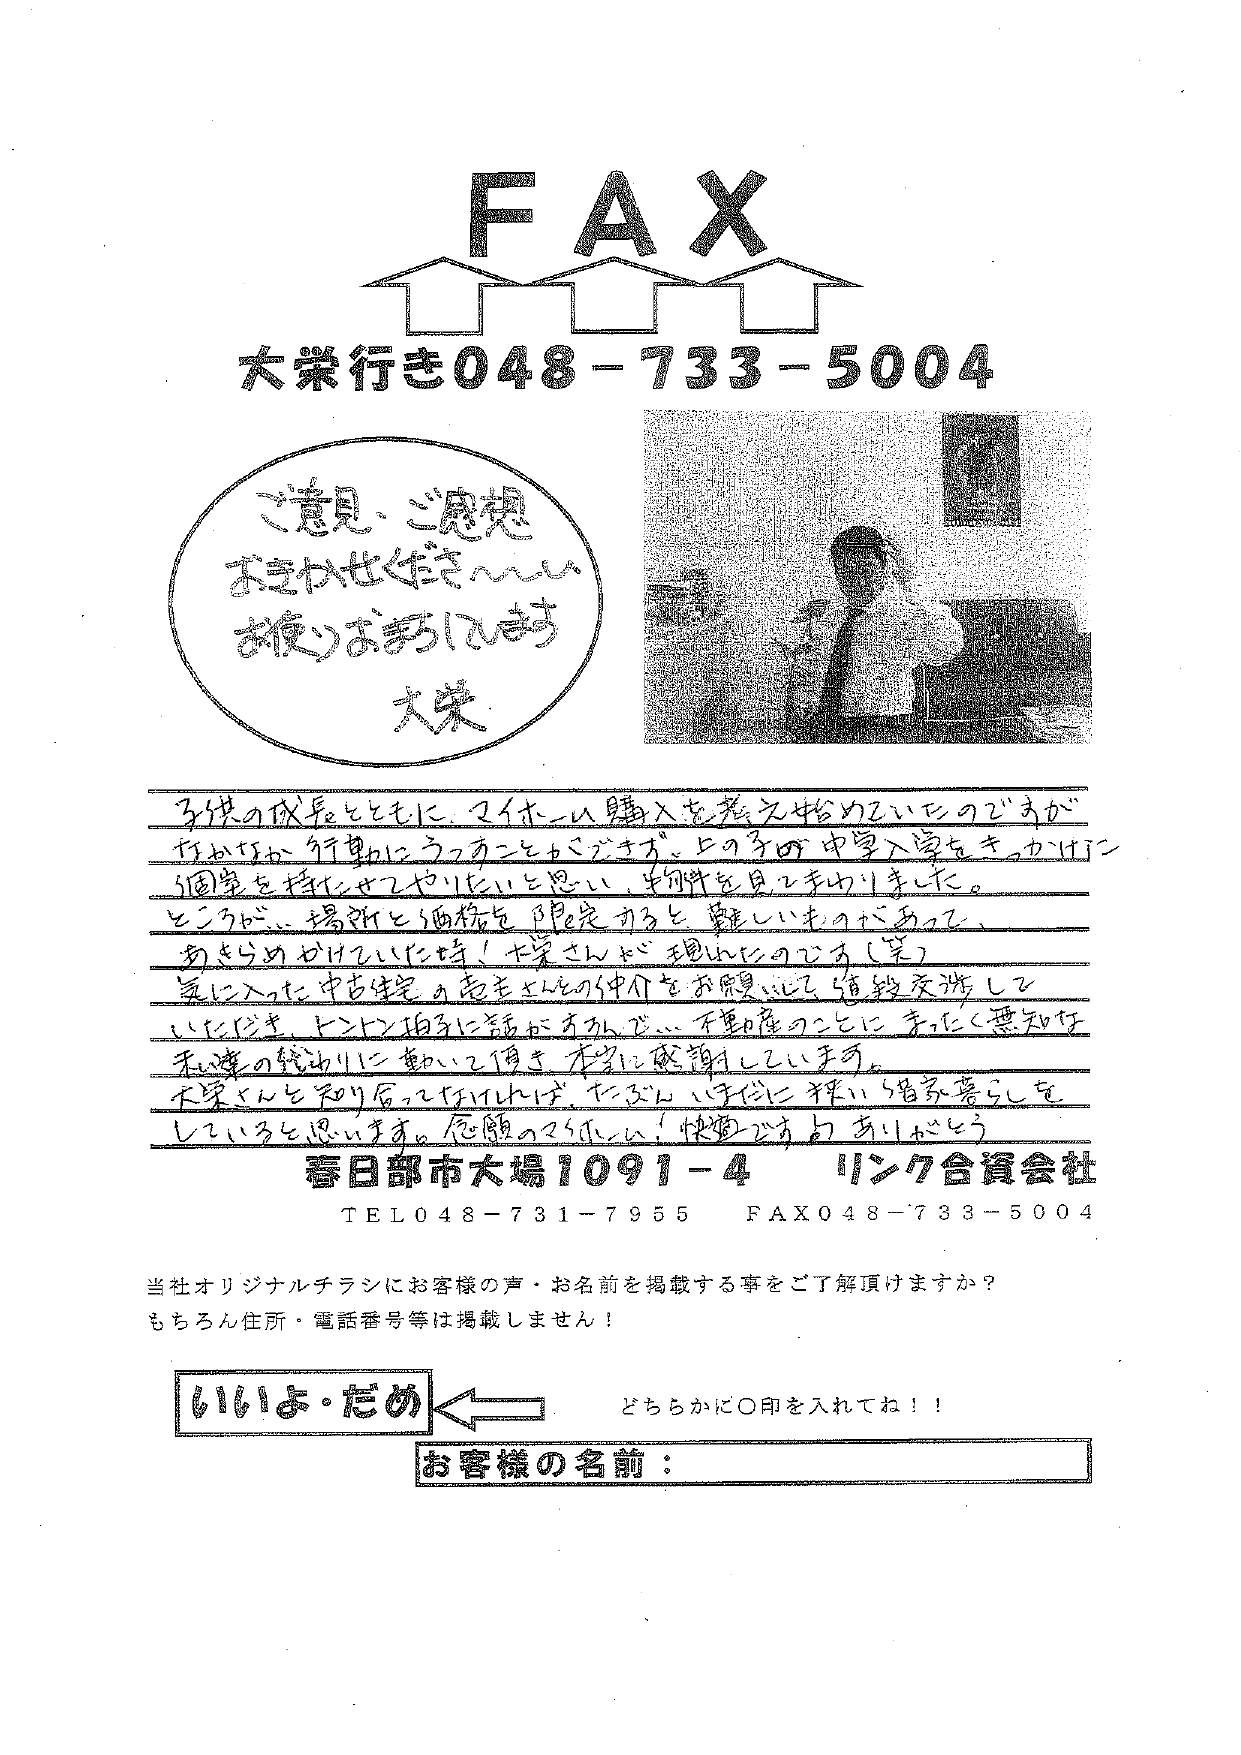 FAX
大栄行き048－733－5004
ご意見、ご感想
おきかせくださ～～い
お便りおまちしています
大栄
子供の成長とともに、マイホーム購入を考え始めていたのですが
なかなか行動にうつすことができず、上の子の中学入学をきっかけに
個室を持たせてやりたいと思い、物件を見てまわりました。
ところが…場所と価格を限定すると難しいものがあって、
あきらめかけていた時！大栄さんが現れたのです（笑）
気に入った中古住宅の売主さんとの仲介をお願いして、値段交渉して
いただき、トントン拍子に話がすすんで…不動産のことにまったく無知な
私達の代わりに動いて頂き、本当に感謝しています。
大栄さんと知り合ってなければ、たぶんいまだに狭い借家暮らしを
していると思います。念願のマイホーム！快適ですよ ありがとう
春日部市大場1091－4　リンク合資会社
ＴＥＬ０４８－７３１－７９５５　ＦＡＸ０４８－７３３－５００４
当社オリジナルチラシにお客様の声・お名前を掲載する事をご了解頂けますか？
もちろん住所・電話番号等は掲載しません！
いいよ・だめ
どちらかに〇印を入れてね！！
お客様の名前：